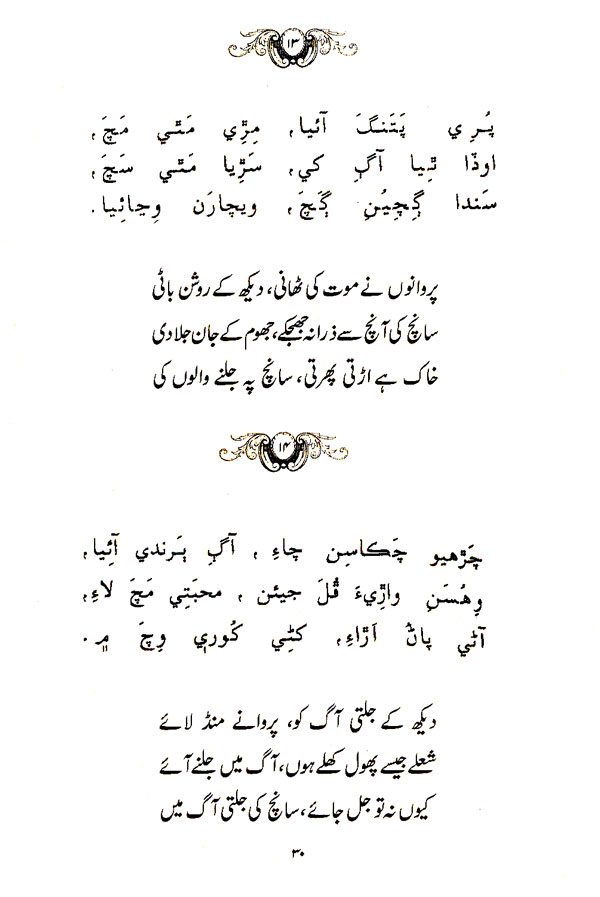 ۱۳
پُرِي پَتَنگَ آئيا، مِڙِي مَٿي مَچَ،
اوڏا ٿِيا آڳِ کي، سَڙِيا مَٿي سَچَ،
سَندا ڳِچِيُنِ ڳَچَ، ويچارَن وِڃائِيا.
پروانوں نے موت کی ٹھانی، دیکھ کے روشن باٹی
سانچ کی آنچ سے ذرا نہ جھجکے، جھوم کے جان جلا دی
خاک ہے اڑتی پھرتی، سانچ پہ جلنے والوں کی
۱۴
چَڙهيو چَڪاسِن چاءِ، آڳِ ٻَرندي آئِيا،
وِهُسَنِ واڙِيءَ ڦُلَ جيئن، محبَتِي مَچَ لاءِ،
آڻي پاڻُ اَڙاءِ، کڻِي کُوري وِچَ ۾.
دیکھ کے جلتی آگ کو، پروانے منڈلائے
شعلے جیسے پھول کھلے ہوں، آگ میں جلنے آئے
کیوں نہ تو جل جائے، سانچ کی جلتی آگ میں
۳۰